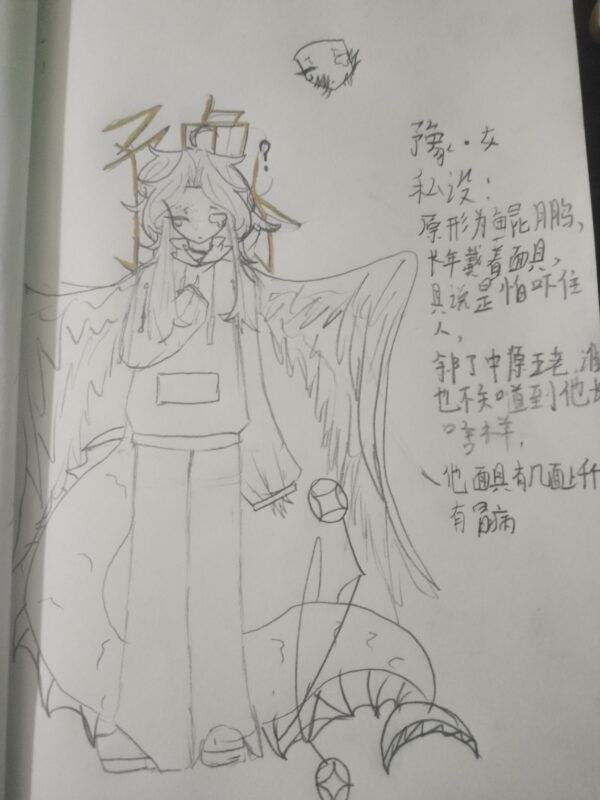 豫·女
私设：
原形为鲲鹏，
长年戴着面具，
具说是怕吓住
人，
除了中原五老，谁
也不知道到他长
啥样，
、他面具有几面上千
有胃病
？